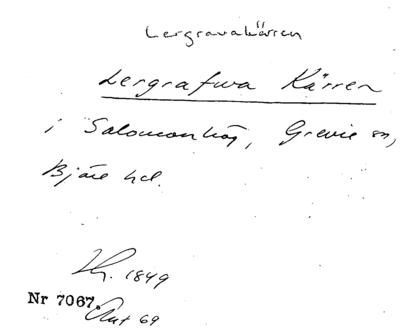 Lergravakärren
Lergrafwa Kärren
i Salomonhög, Grevie sn,
Bjäre hd.
1849
Nr 7067.
Akt 69